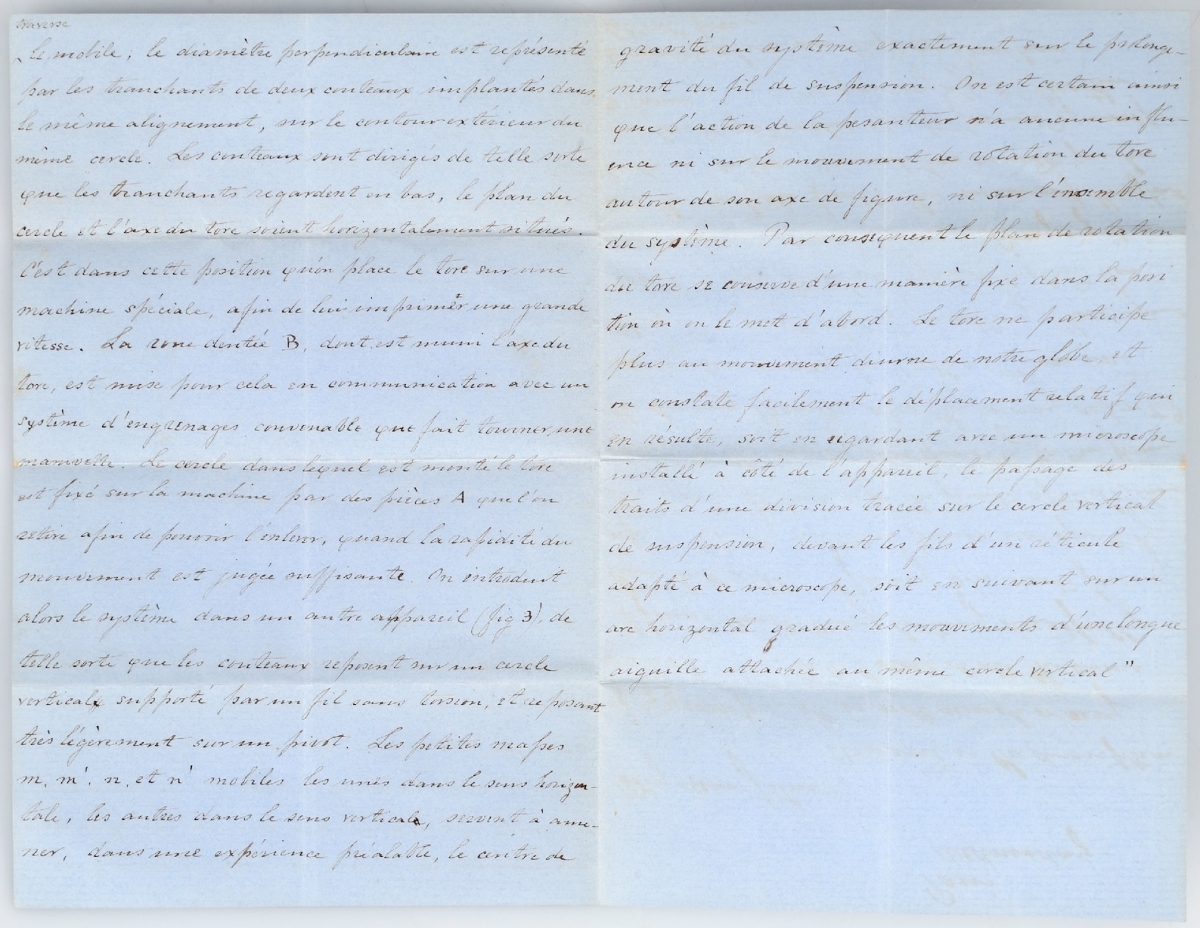 traverse
le mobile; le diamètre perpendiculaire est représenté
par les tranchants de deux couteaux implantés dans
le même alignement, sur le contour extérieur du
même cercle. Les couteaux sont dirigés de telle sorte
que les tranchants regardent en bas, le plan du
cercle et l'axe du tore soient horizontalement situés.
C'est dans cette position qu'on place le tore sur une
machine spéciale, afin de lui imprimer une grande
vitesse. La zone dentée B, dont est muni l'axe du
tore, est mise pour cela en communication avec un
système d'engrenages convenable que fait tourner une
manivelle. Le cercle dans lequel est monté le tore
est fixé sur la machine par des pièces A que l'on
retire afin de pouvoir l'enlever, quand la rapidité du
mouvement est jugée suffisante. On introduit
alors le système dans un autre appareil (fig 3) de
telle sorte que les couteaux reposent sur un cercle
vertical supporté par un fil sans torsion, et reposant
très légèrement sur un pivot. Les petites masses
m. m'. n. et n' mobiles les unes dans le sens horizon-
tale, les autres dans le sens verticale, servent à ame-
ner, dans une expérience préalable, le centre de
gravité du système exactement sur le prolonge-
ment du fil de suspension. On est certain ainsi
que l'action de la pesanteur n'a aucune influ-
ence ni sur le mouvement de rotation du tore
autour de son axe de figure, ni sur l'ensemble
du système. Par conséquent le plan de rotation
du tore se conserve d'une manière fixe dans la posi
tion où on le met d'abord. Le tore ne participe
plus au mouvement diurne de notre globe, et
on constate facilement le déplacement relatif qui
en résulte, soit en regardant avec un microscope
installé à côté de l'appareil, le passage des
traits d'une division tracée sur le cercle vertical
de suspension, devant les fils d'un réticule
adapté à ce microscope, soit en suivant sur un
arc horizontal gradué les mouvements d'une longue
aiguille attachée au même cercle vertical"